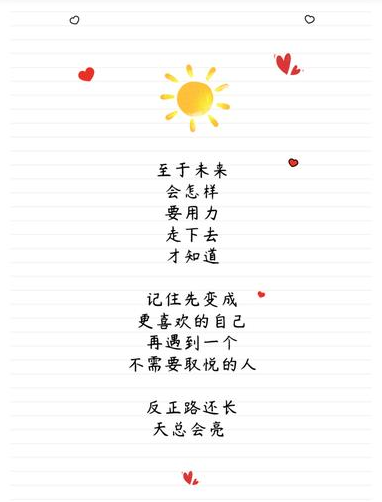 至于未来
会怎样
要用力
走下去
才知道
记住先变成
更喜欢的自己
再遇到一个
不需要取悦的人
反正路还长
天总会亮